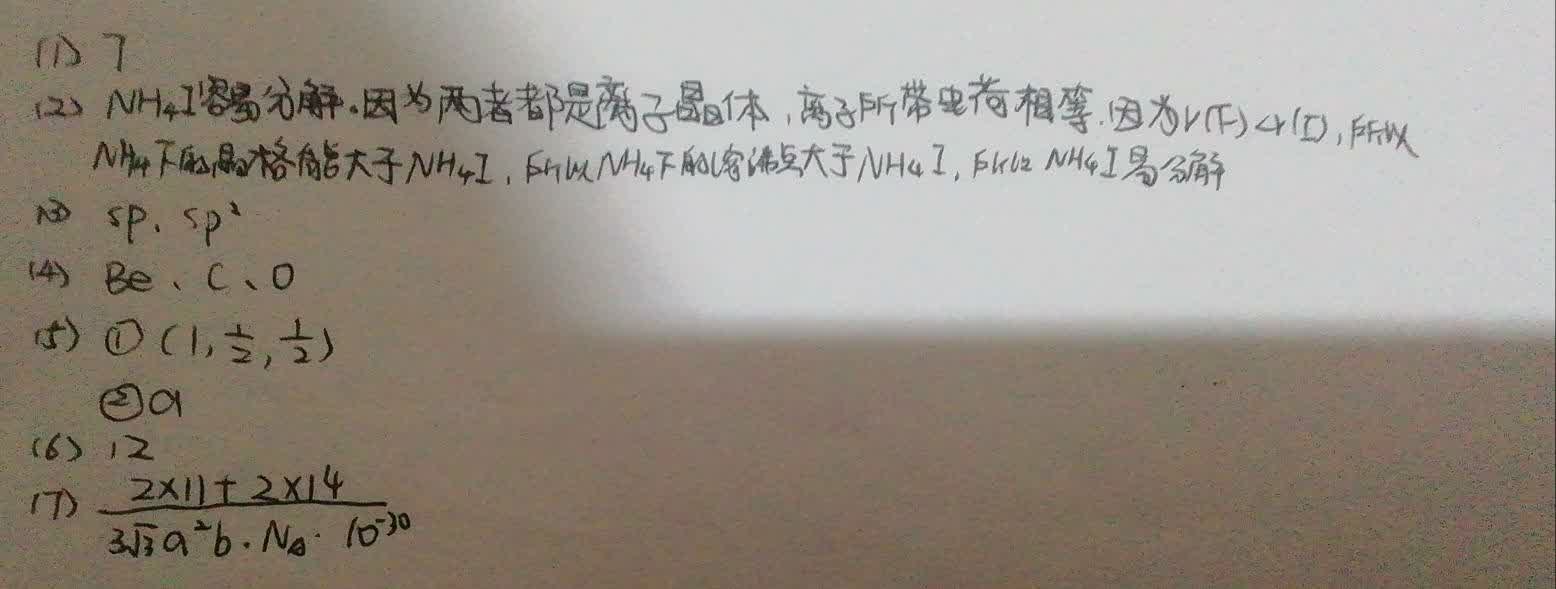 (1) 7
(2) NH₄I容易分解.因为两者都是离子晶体,离子所带电荷相等.因为r(F)<r(I),所以
NH₄F的晶格能大于NH₄I,所以NH₄F的熔沸点大于NH₄I,所以NH₄I易分解
(3) sp、sp²
(4) Be、C、O
(5) ①(1,1/2,1/2)
②a
(6) 12
(7) (2×11+2×14)/(3√3a²b·N_A·10⁻³⁰)